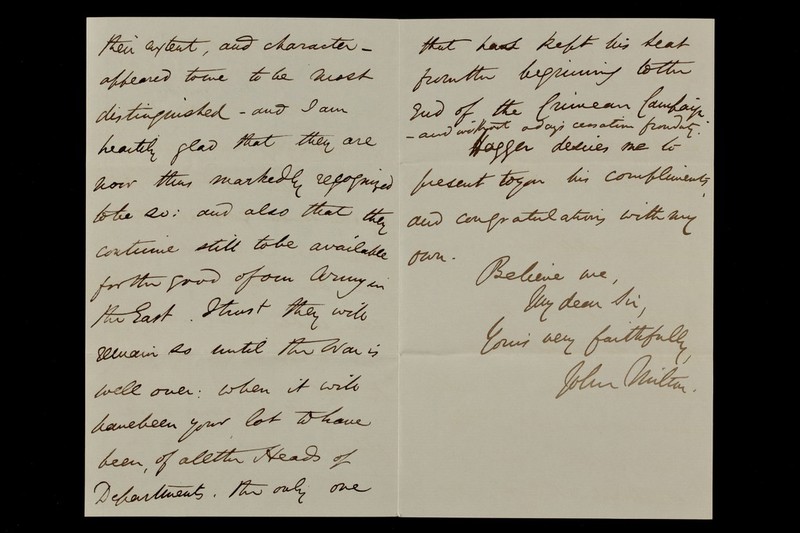 their extent, and character –
appeared to me to be most
distinguished – and I am
heartily glad that they are
now thus markedly recognized
to be so: and also that they
continue still to be available
for the good of our Army in
the East. I trust they will
remain so until the War is
well over: when it will
have been your lot to have
been, of all the Heads of
Departments, the only one
that has kept his seat
from the beginning to the
End of the Crimean Campaign
– and without a day's cessation from duty.
Hagger desires me to
present to you his compliments,
and congratulations with my
own.
Believe me,
My dear Sir,
Yours very faithfully,
John Milton.